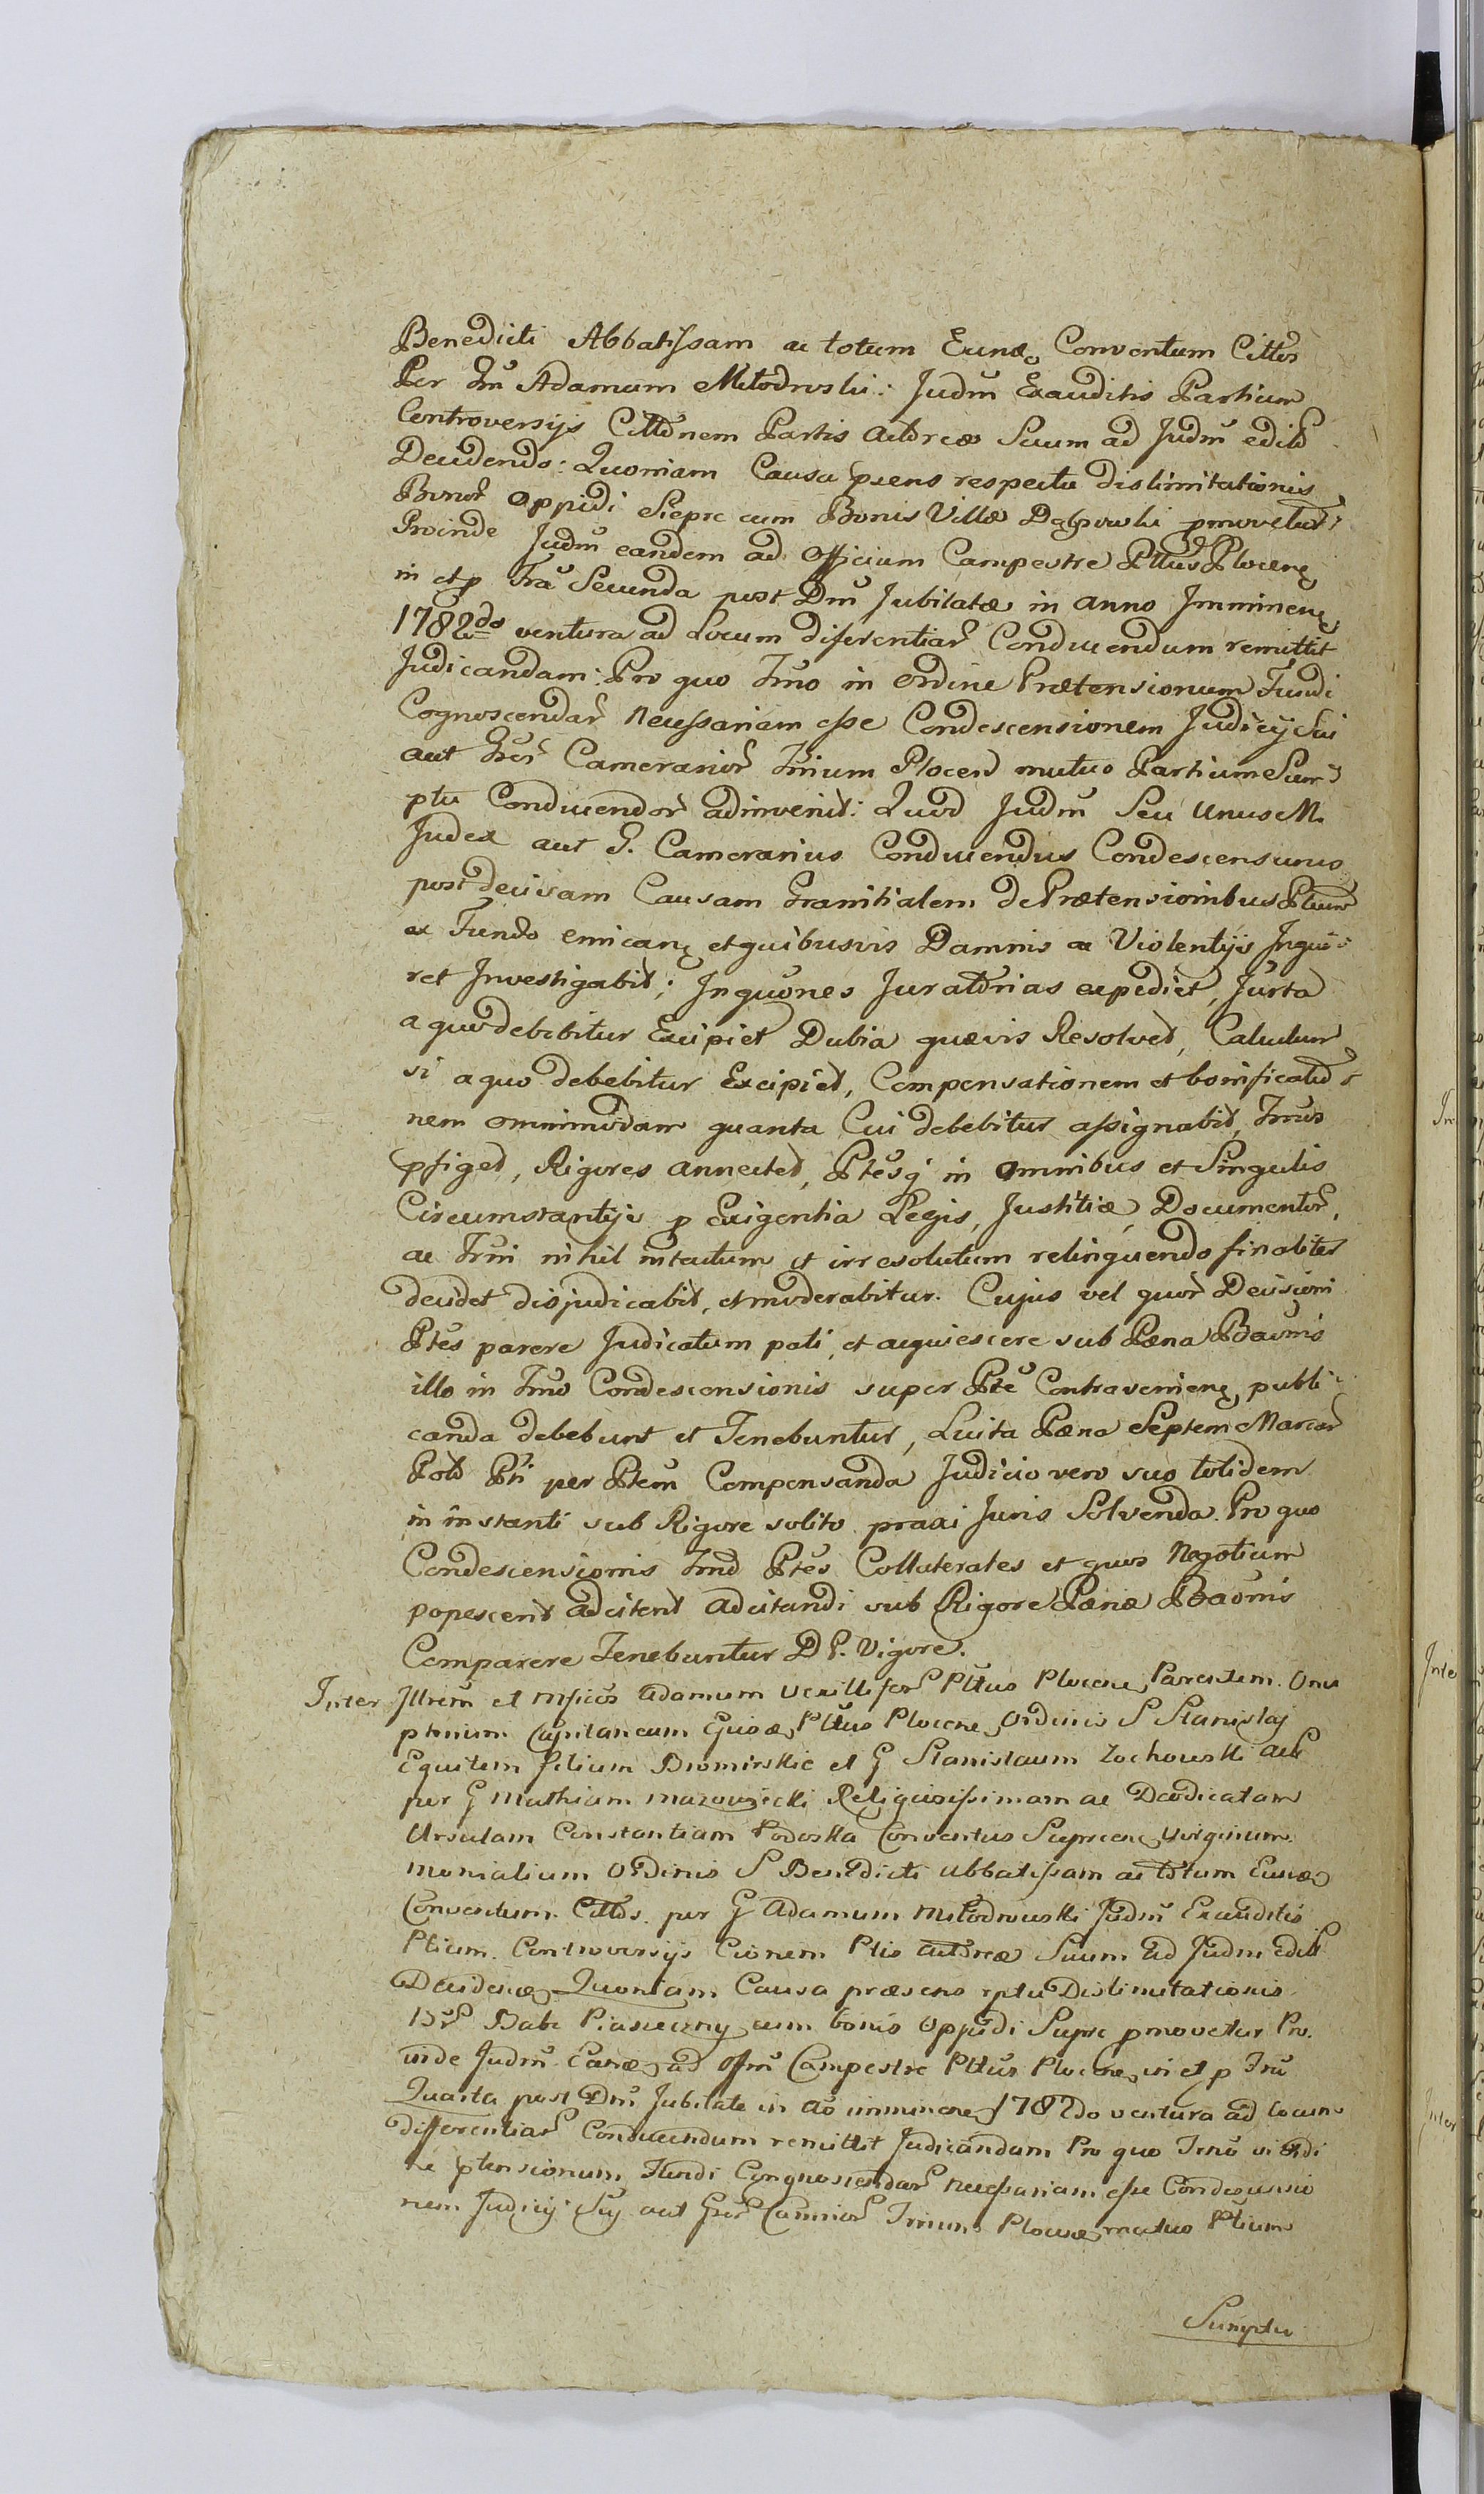 Benedicti Abbatissam ac totum Eundę Conventum Cittos
Per Gm Adamum Młodowski: Judm Exauditis Partium
Controversijs Cittõnem Partis Actoreæ Suum ad Judm edit
Decidendo: Quoniam Causa præens respectu dislimitationis
Bonor oppidi Sieprc cum Bonis Villæ Dąbrowki pmovetur
Proinde Judm eandem ad Officium Campestre Pttus Plocenę
in et p Fra Secunda post Dm Jubilatæ in anno Imminenę
1782do ventura ad Locum diferentiar Conducendum remittit
Judicandam: Pro quo Tmo in ordine Prætensionum Fundi
Cognoscendar necessariam esse Condescensionem Judicij Sui
aut Gser Camerarior Trium Plocen mutuo Partium Sum
ptu Conducendor adinvenit: Quod Judm Seu Unus M.
Judex aut G. Camerarius Conducendus Condescensurus
post decisam Causam Granitialem de Prætensionibus Ptium
ex Fundo emicanę et quibusvis Damnis ac Violentijs Inqui
ret Investigabit; Inquõnes Juratõrias expediet, Jurta
a quo debebitur Excipiet Dubia quævis Resolvet, Calculum
si a quo debebitur Excipiet, Compensationem et bonificatio
nem omnimodam quanta Cui debebitur assignabit, Tmos
pfiget, Rigores annectet, Ptesq in omnibus et Singulis
Circumstantijs p Exigentia Legis, Justitiæ, Documentor,
ac Trni nihil intactum et irresolutum relinquendo finaliter
decidet disjudicabit, et moderabitur. Cujus vel quor Decisioni
Ptes parere Judicatum pati, et acquiescere sub Pæna Baonis
illo in Tmo Condescensionis super Pte Contravenienę publi
canda debebunt et Tenebuntur, Luita Pæna Septem Marcar
Polo Pti per Ptem Compensanda Judicio vero suo totidem
in instanti sub Rigore solito praxi Juris Solvenda. Pro quo
Condescensionis Tmo Ptes Collaterales et quos Negotium
poposcerit adcitent adcitandi sub Rigore Pænæ Baonis
Comparere Tenebuntur D P. Vigore.
Inter Illrem et Mficos Adamum Vexilliferr Pttus Plocenę Parentem. Onu
phrium Capitaneum Pttus Plocenę Ordinis S Stanislaj
Equitem filium Bromirskie et G Stanislaum Zochowski act
per G Mathiam Mazowiecki Religiosissimam ac Deodicatam
Ursulam Constantiam Podoska Conventus Sieprcenę Virginum
monialium Ordinis S Benedicti abbatissam ac totum Eundę
Conventum Cittos. per G Adamum Młodowski Judm Exauditis
Ptium Controversijs Ctonem Ptis actoreæ Suum ad Judm edit
Decidendę Quoniam Causa præsens rptu Dislimitationis
Br Babi Piaseczny cum bonis oppidi Sieprc pmovetur Pro.
inde Judm Eandę ad offm Campestre Pttus Plocenę in et p Fra
Quarta post Dm Jubilate in ao imminenę 1782do ventura ad locum
differentiar Conducendum remittit Judicandam Pro quo Trno in Ordi
ne ptensionum Fundi Congnoscendar necessariam esse Condescensio
nem Judicij Sui aut Gser Camrior Trium Plocenę mutuo Ptium
Sumptu